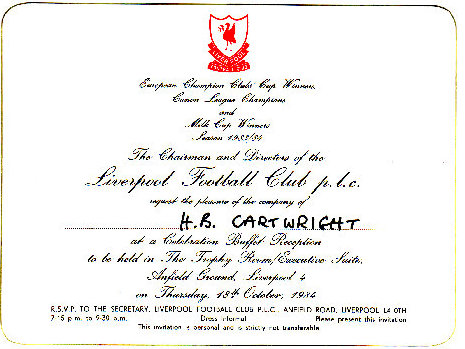 LIVERPOOL
European Champion Clubs' Cup Winners,
Canon League Champions
and
Milk Cup Winners
Season 1983/84
The Chairman and Directors of the
Liverpool Football Club p.l.c.
request the pleasure of the company of
H.B. CARTWRIGHT
at a Celebration Buffet Reception
to be held in The Trophy Room/Executive Suite,
Anfield Ground, Liverpool 4
on Thursday, 18th October, 1984
R.S.V.P. TO THE SECRETARY, LIVERPOOL FOOTBALL CLUB P.L.C., ANFIELD ROAD, LIVERPOOL L4 0TH
7.15 p.m. to 9.30 p.m. Dress informal Please present this invitation
This invitation is personal and is strictly not transferable